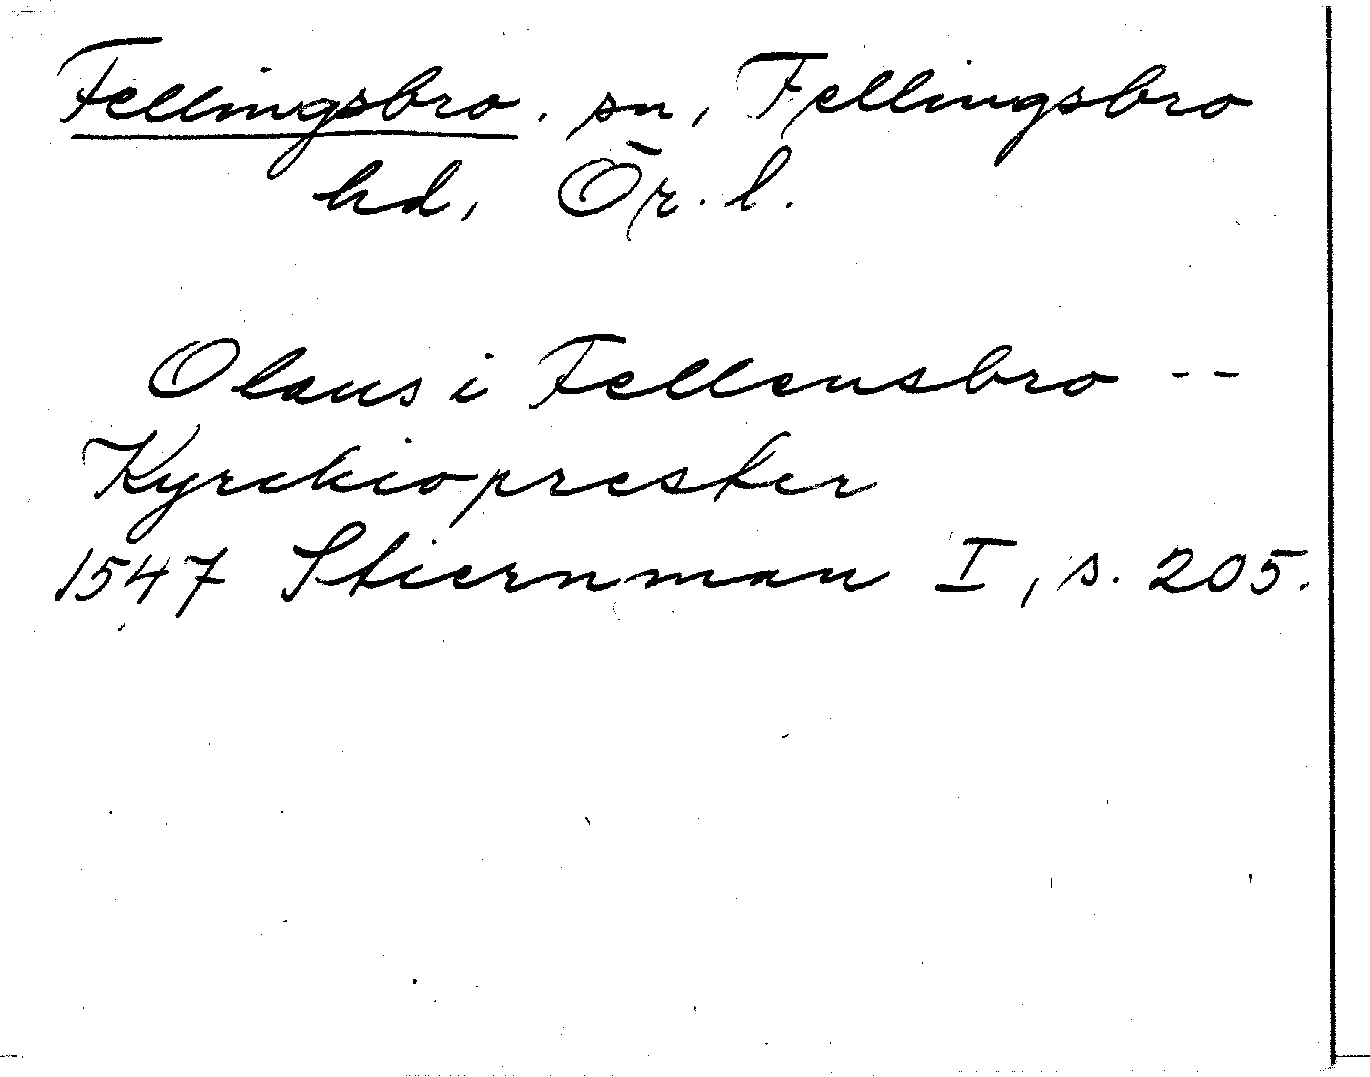 Fellingsbro. sn, Fellingsbro
hd, Ör. l.
Olaus i Fellensbro --
Kyrckioprester
1547 Stiernman I, s. 205.